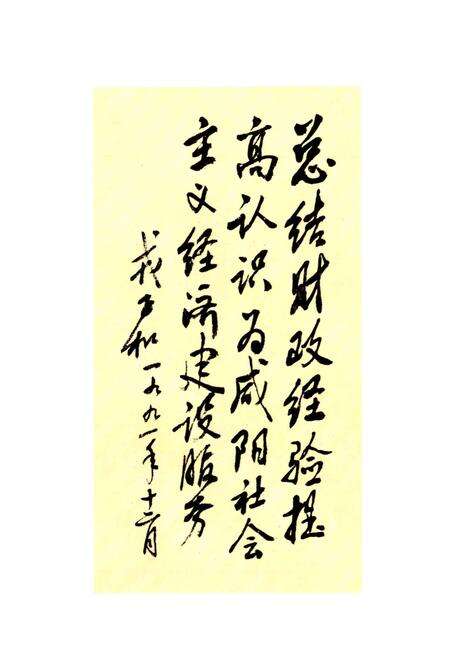 总结财政经验提
高认识为咸阳社会
主义经济建设服务
一九九一年十二月